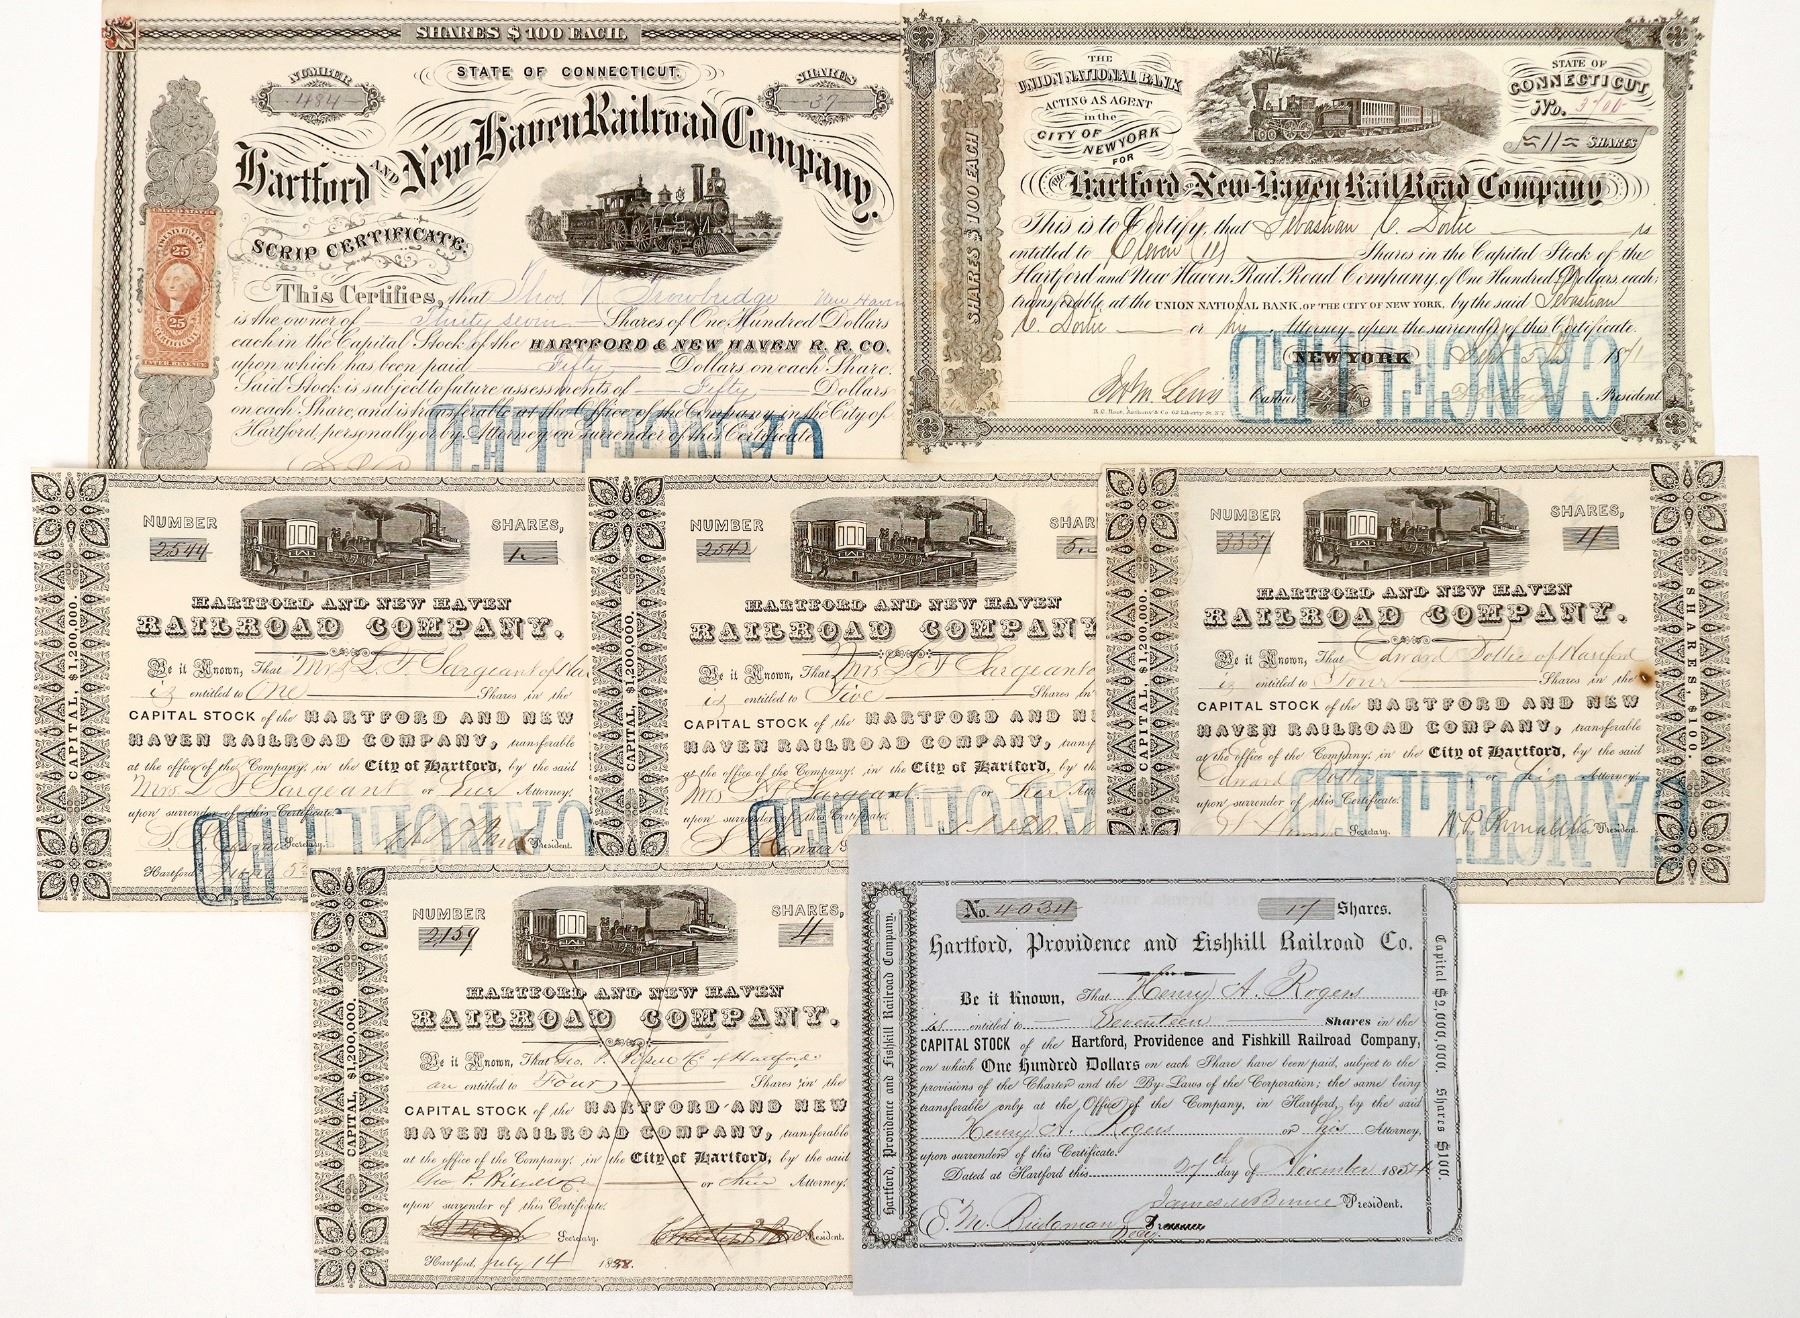 SHARES $100 EACH.
NUMBER
484
STATE OF CONNECTICUT.
SHARES
37
Hartford AND New Haven Railroad Company.
SCRIP CERTIFICATE.
25
25
This Certifies, that Thos. R Trowbridge New Haven
is the owner of Thirty seven Shares of One Hundred Dollars
each in the Capital Stock of the HARTFORD & NEW HAVEN R. R. CO.
upon which has been paid Fifty Dollars on each Share.
Said Stock is subject to future assessments of Fifty Dollars
on each Share, and is transferable at the Office of the Company, in the City of
Hartford, personally or by Attorney on surrender of this Certificate.
CANCELLED
SHARES $100 EACH
THE
UNION NATIONAL BANK
ACTING AS AGENT
in the
CITY OF
NEW YORK
FOR
STATE OF
CONNECTICUT
No.
11 SHARES
THE Hartford AND New-Haven Rail Road Company
This is to Certify, that Sebastian C. is
entitled to Eleven (11) Shares in the Capital Stock of the
Hartford and New Haven Rail Road Company, of One Hundred Dollars, each;
transferable at the UNION NATIONAL BANK, OF THE CITY OF NEW YORK, by the said Sebastian
C. or by Attorney upon the surrender of this Certificate.
NEW YORK Sept 5th 18
Lewis Cashier President
CANCELLED
CAPITAL, $1,200,000.
NUMBER
2544
SHARES,
1
HARTFORD AND NEW HAVEN
RAILROAD COMPANY.
Be it Known, That Mrs. L. F. Sargeant of
is entitled to One Shares in the
CAPITAL STOCK of the HARTFORD AND NEW
HAVEN RAILROAD COMPANY, transferable
at the office of the Company, in the City of Hartford, by the said
Mrs L F Sargeant or her Attorney,
upon surrender of this Certificate.
Secretary. President.
Hartford,
CANCELLED
CAPITAL, $1,200,000.
NUMBER
2542
SHAR
5
HARTFORD AND NEW HAVEN
RAILROAD COMPANY
Be it Known, That Mrs L F Sargeant
is entitled to Five Shares in
CAPITAL STOCK of the HARTFORD AND N
HAVEN RAILROAD COMPANY, transf
at the office of the Company, in the City of Hartford, by th
Mrs L F Sargeant or her Att
upon surrender of this Certificate.
CANCELLED
CAPITAL, $1,200,000.
NUMBER
SHARES,
4
HARTFORD AND NEW HAVEN
RAILROAD COMPANY.
Be it Known, That Edward of Hartford
is entitled to Four Shares in the
CAPITAL STOCK of the HARTFORD AND NEW
HAVEN RAILROAD COMPANY, transferable
at the office of the Company, in the City of Hartford, by the said
Edward or his Attorney,
upon surrender of this Certificate.
Secretary. President.
SHARES, $100.
CANCELLED
CAPITAL, $1,200,000.
NUMBER
2,159
SHARES,
4
HARTFORD AND NEW HAVEN
RAILROAD COMPANY.
Be it Known, That Geo. P. of Hartford
are entitled to Four Shares in the
CAPITAL STOCK of the HARTFORD AND NEW
HAVEN RAILROAD COMPANY, transferable
at the office of the Company, in the City of Hartford, by the said
Geo P. or their Attorney,
upon surrender of this Certificate.
Secretary. President.
Hartford, July 14 18
Hartford, Providence and Fishkill Railroad Company.
No. 4034
17 Shares.
Hartford, Providence and Fishkill Railroad Co.
Be it Known, That Henry A. Rogers
is entitled to Seventeen Shares in the
CAPITAL STOCK of the Hartford, Providence and Fishkill Railroad Company,
on which One Hundred Dollars on each Share have been paid, subject to the
provisions of the Charter and the By-Laws of the Corporation; the same being
transferable only at the Office of the Company, in Hartford, by the said
Henry A. Rogers or his Attorney,
upon surrender of this Certificate.
Dated at Hartford this 27th day of November 1854
James Bunce President.
E. M. Bridgman Secy.
Capital $2,000,000. Shares $100.